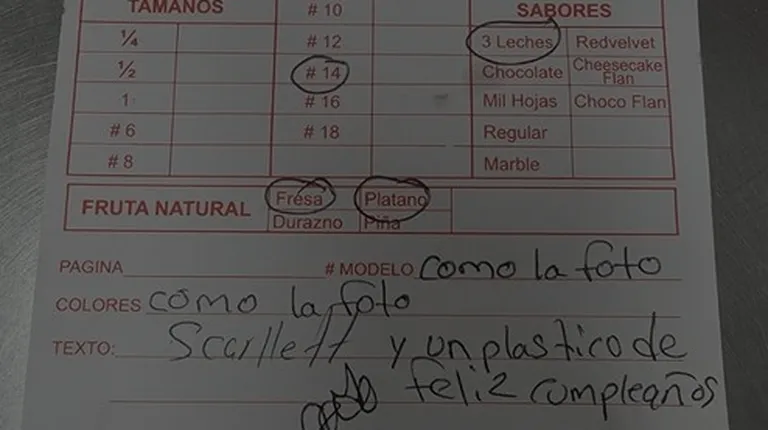 TAMAÑOS # 10 SABORES
1/4 # 12 3 Leches Redvelvet
1/2 # 14 Chocolate Cheesecake Flan
1 # 16 Mil Hojas Choco Flan
# 6 # 18 Regular
# 8 Marble
FRUTA NATURAL Fresa Platano
Durazno Piña
PAGINA # MODELO como la foto
COLORES como la foto
TEXTO: Scarllett y un plastico de
feliz cumpleaños